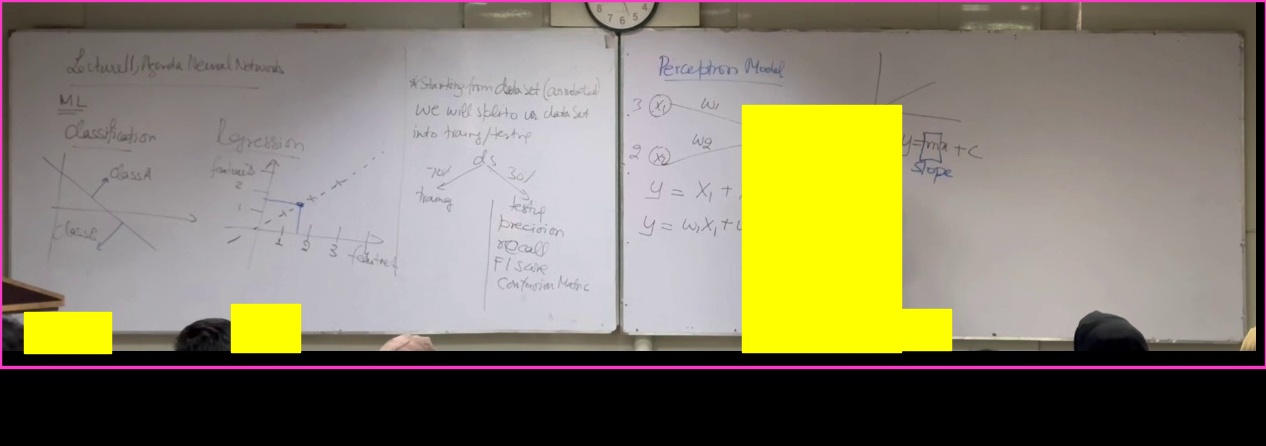 Lecture 11, Agenda Neural Networks
ML
Classification
Class A
Regression
2
1
1 2 3
*Starting from data set (annotated)
we will split our data set
into traing/testing
ds
70% 30%
traing
testing
precision
recall
F1 score
Confusion Matric
8 7 6 5 4
Perceptron Model
3 X1 W1
2 X2 W2
y = X1 +
y = W1X1 +
y = mx + c
slope